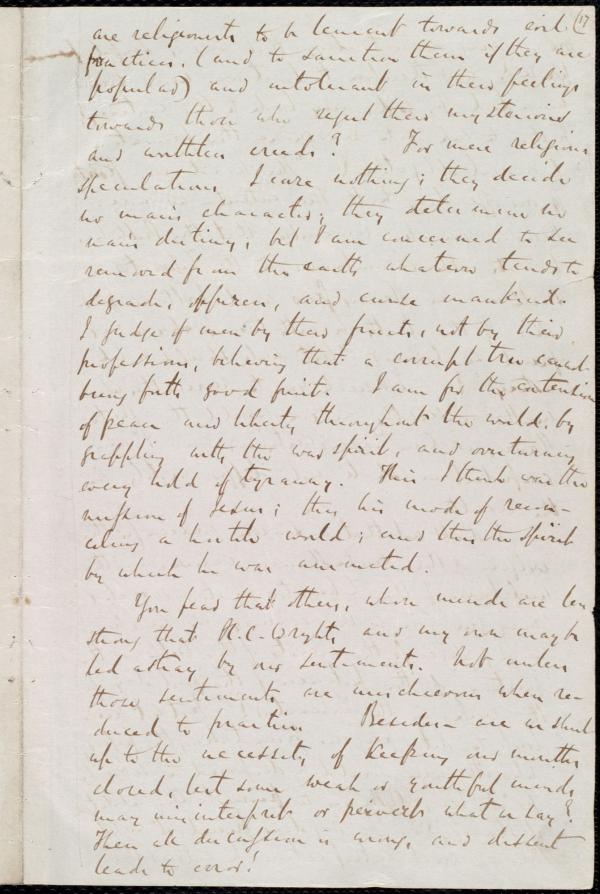 (17
are religionists to be lenient towards evil
practices, (and to sanction them if they are
popular) and intolerant in their feelings
towards those who reject their mysterious
and worthless creeds? For mere religious
speculations I care nothing; they decide
no man's character, they determine no
man's destiny; but I am concerned to see
removed from the earth whatever tends to
degrade, oppress, and curse mankind.
I judge of men by their fruits, not by their
professions, believing that a corrupt tree cannot
bring forth good fruit. I am for the
of peace and liberty throughout the world, by
grappling with the war spirit, and overturning
every hold of tyranny. This I think was the
mission of Jesus; this his mode of recon-
ciling a hostile world; and this the spirit
by which he was animated.
You fear that others, whose minds are less
strong that H.C. Wright's and my own may be
led astray by our sentiments. Not unless
those sentiments are mischievous when re-
duced to practice. Besides are we shut
up to the necessity of keeping our mouths
closed, lest some weak or youthful minds
may misinterpret or pervert what we say?
Then all discussion is wrong, and dissent
leads to error!